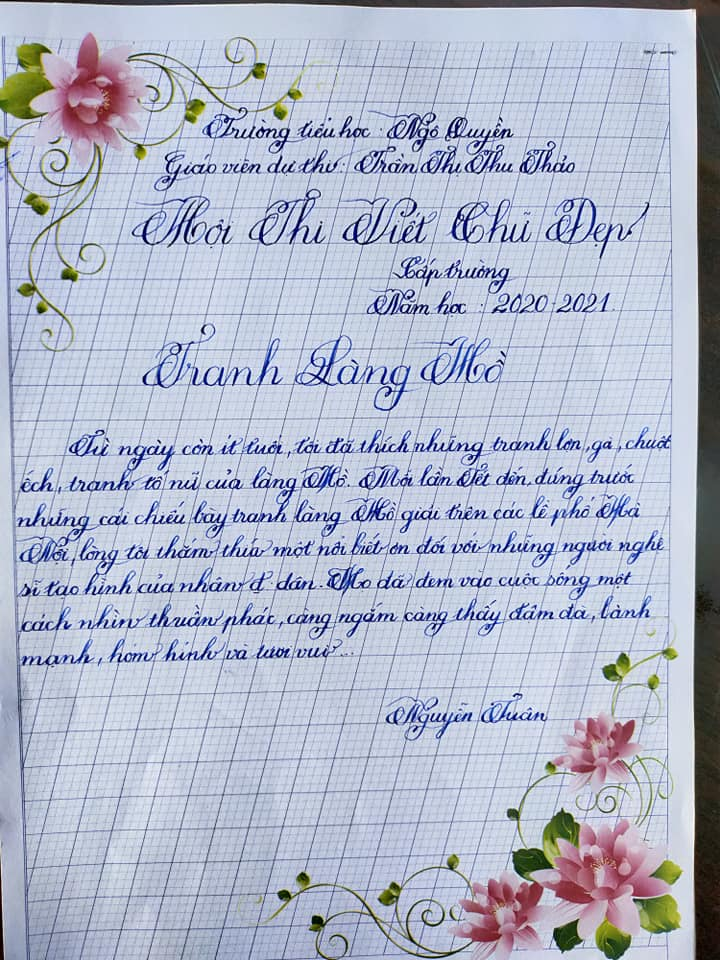 Trường tiểu học : Ngô Quyền
Giáo viên dự thi : Trần Thị Thu Thảo
Hội Thi Viết Chữ Đẹp
Cấp trường
Năm học : 2020-2021
Tranh Làng Hồ
Từ ngày còn ít tuổi, tôi đã thích những tranh lợn, gà, chuột
ếch, tranh tố nữ của làng Hồ. Mỗi lần Tết đến, đứng trước
những cái chiếu bày tranh làng Hồ giải trên các lề phố Hà
Nội, lòng tôi thấm thía một nỗi biết ơn đối với những người nghệ
sĩ tạo hình của nhân dân. Họ đã đem vào cuộc sống một
cách nhìn thuần phác, càng ngắm càng thấy đậm đà, lành
mạnh, hóm hỉnh và tươi vui...
Nguyễn Tuân